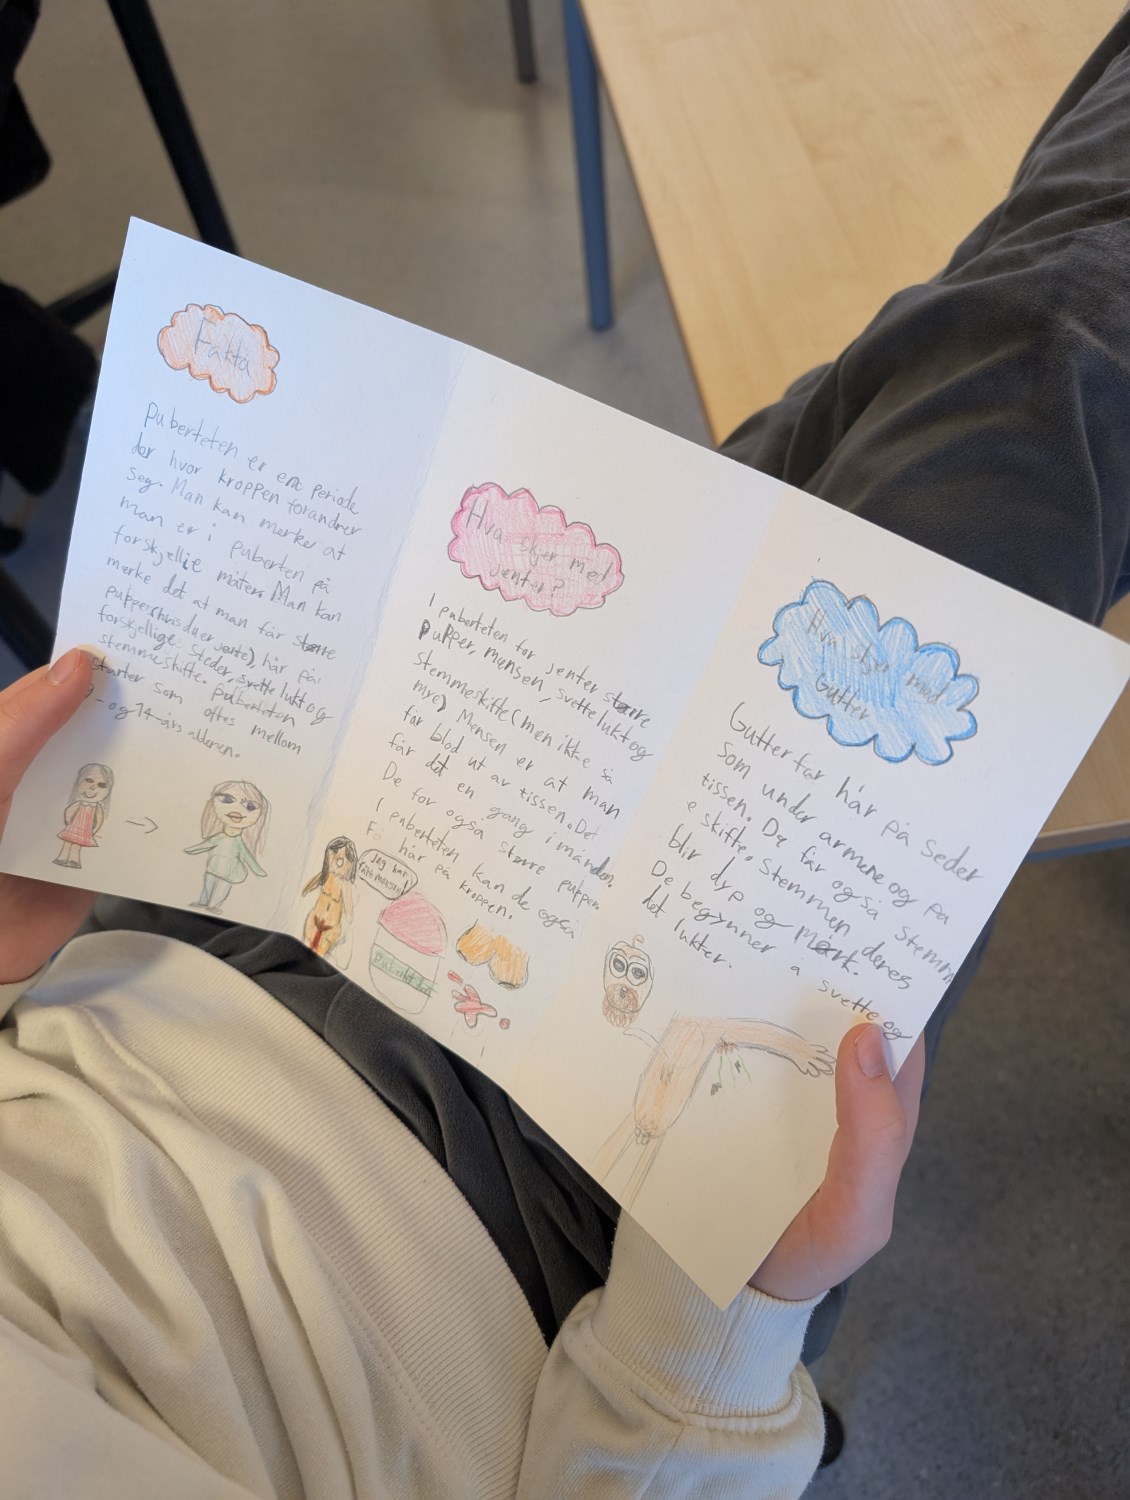 Fakta
Puberteten er en periode
der hvor kroppen forandrer
seg. Man kan merke at
man er i puberten på
forskjellie måter. Man kan
merke det at man får større
pupper(hvis du er jente), hår på
forskjellige steder, svette lukt og
stemmeskifte. puberteten
starter som oftes mellom
9- og 14-års alderen.
Hva skjer med
jenter?
I puberteten for jenter større
Pupper, mensen, svette lukt og
stemmeskifte (men ikke så
mye) Mensen er at man
får blod ut av tissen. Det
får det en gang i månden.
De for også større pupper.
I puberteten kan de også
Få hår på kroppen.
Jeg har
fått mensen!
Puberlet
Hva skjer med
Gutter
Gutter får hår på seder
som under armene og på
tissen. De får også stemm
e skifte. Stemmen deres
blir dyp og mørk.
De begynner å svette og
det lukter.